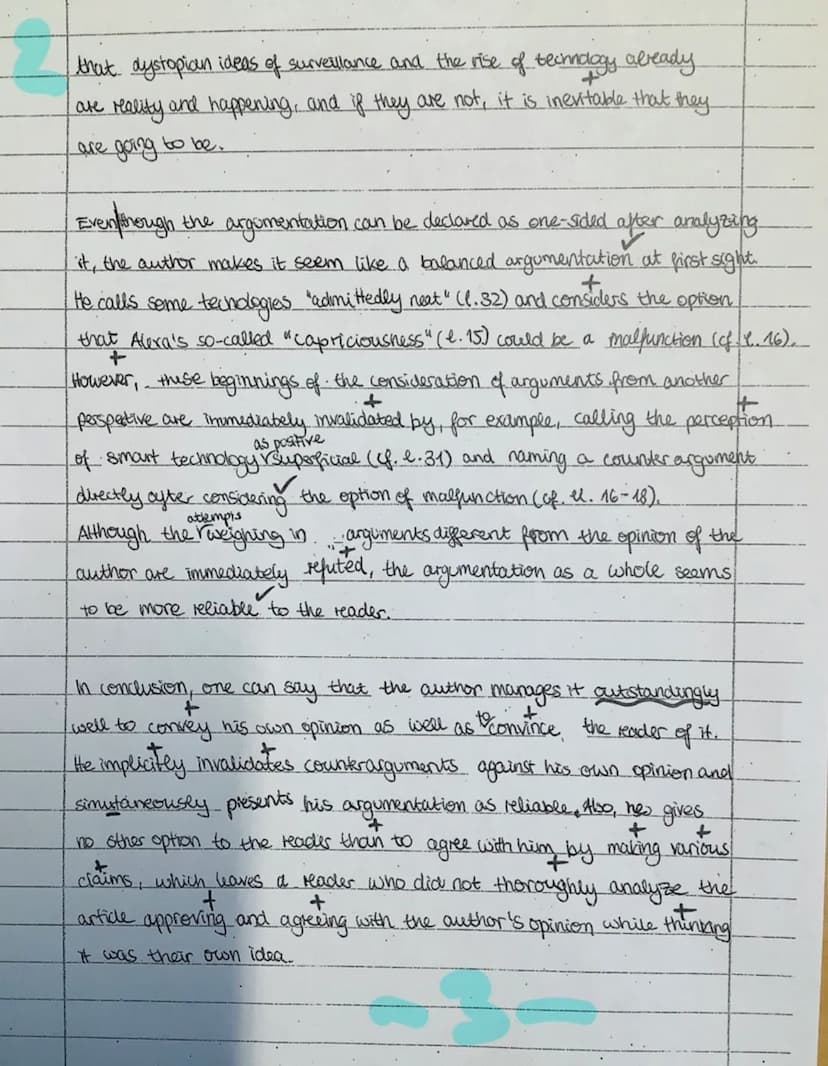 2
that dystopian ideas of surveillance and the rise of technology already
are reality and happening, and if they are not, it is inevitable that they
are going to be.
Even though the argumentation can be declared as one-sided after analyzing
it, the author makes it seem like a balanced argumentation at first sight.
He calls some tecnologies "admittedly neat" (l.32) and considers the option
that Alexa's so-called "capriciousness" (l.15) could be a malfunction (cf. l. 16).
However, these beginnings of the consideration of arguments from another
perspective are immediately invalidated by, for example, calling the perception
as positive
of smart technology superficial (cf. l. 31) and naming a counter argument
directly after considering the option of malfunction (cf. ll. 16-18).
attempts
Although the weighing in arguments different from the opinion of the
author are immediately refuted, the argumentation as a whole seems
to be more reliable to the reader.
In conclusion, one can say that the author manages it outstandingly
well to convey his own opinion as well as to convince the reader of it.
He implicitly invalidates counterarguments against his own opinion and
simultaneously presents his argumentation as reliable. Also, he gives
no other option to the reader than to agree with him by making various
claims, which leaves a reader who did not thoroughly analyze the
article approving and agreeing with the author's opinion while thinking
it was their own idea.
-3-